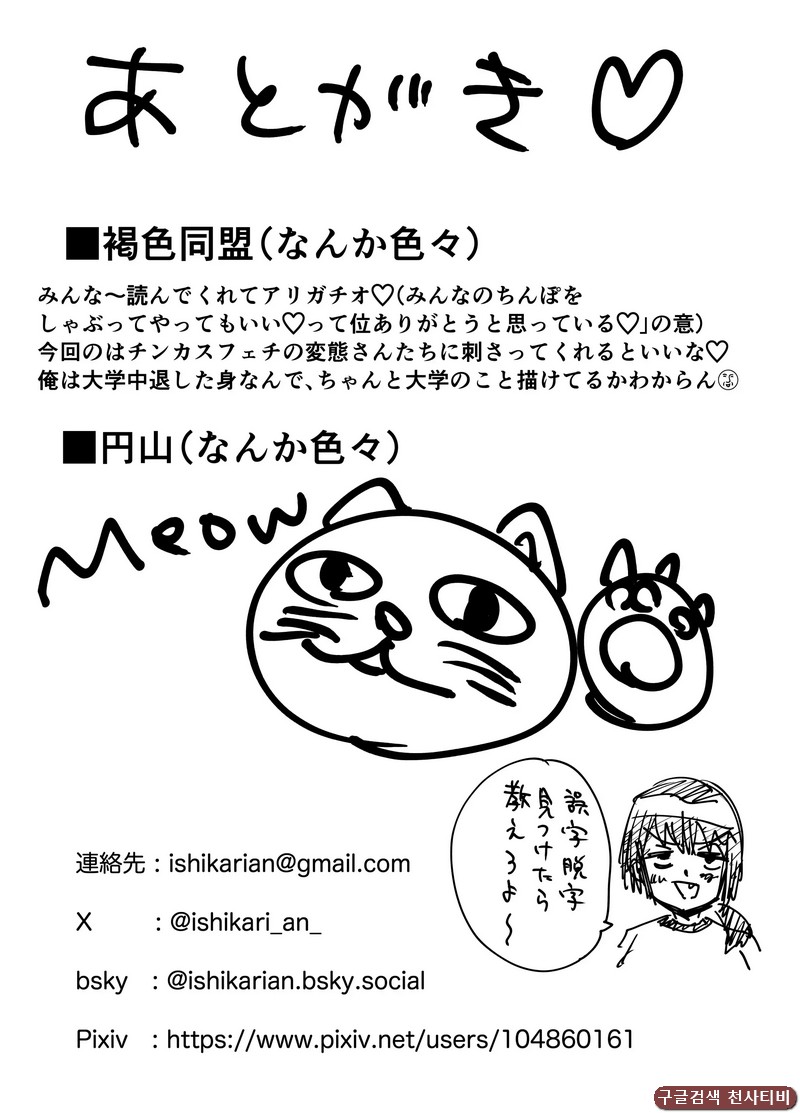 あとがき♡
■褐色同盟(なんか色々)
みんな～読んでくれてアリガチオ♡(みんなのちんぽを
しゃぶってやってもいい♡って位ありがとうと思っている♡」の意)
今回のはチンカスフェチの変態さんたちに刺さってくれるといいな♡
俺は大学中退した身なんで、ちゃんと大学のこと描けてるかわからん
■円山(なんか色々)
Meow
誤字脱字
見つけたら
教えろよ～
連絡先 : ishikarian@gmail.com
X : @ishikari_an_
bsky : @ishikarian.bsky.social
Pixiv : https://www.pixiv.net/users/104860161
구글검색 천사티비